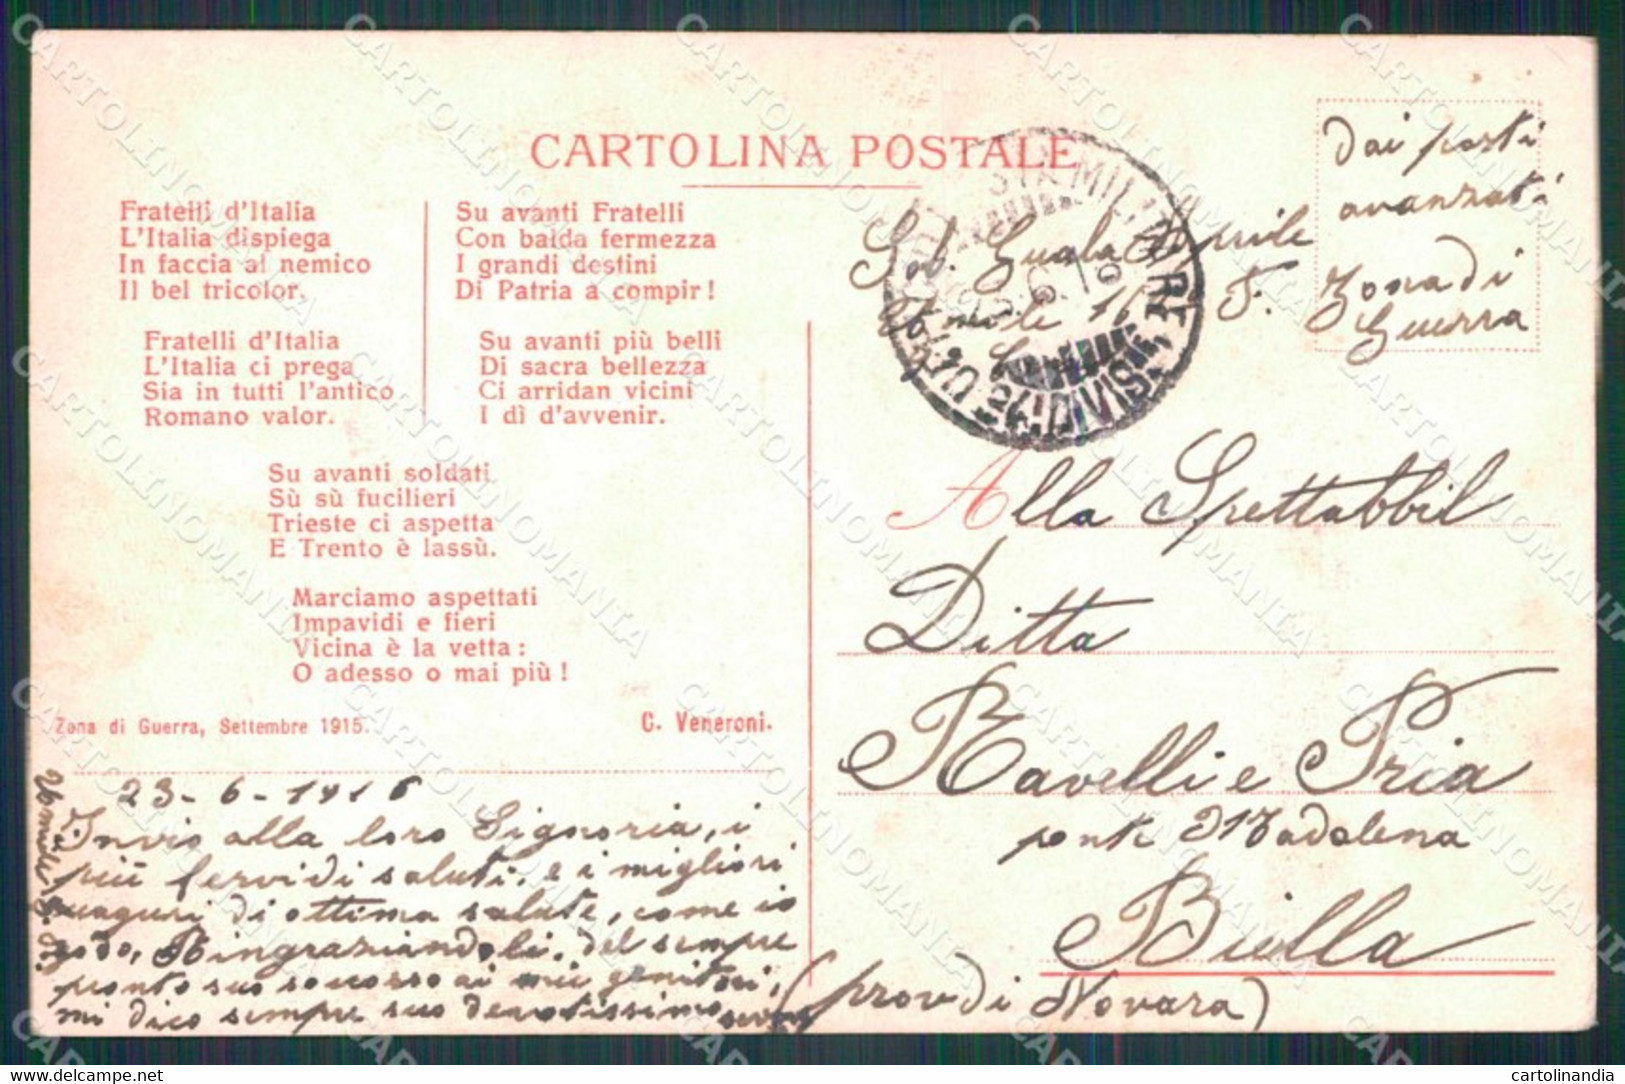 CARTOLINA POSTALE
Fratelli d'Italia
L'Italia dispiega
In faccia al nemico
Il bel tricolor.
Su avanti Fratelli
Con balda fermezza
I grandi destini
Di Patria a compir!
Fratelli d'Italia
L'Italia ci prega
Sia in tutti l'antico
Romano valor.
Su avanti più belli
Di sacra bellezza
Ci arridan vicini
I dì d'avvenir.
Su avanti soldati
Sù sù fucilieri
Trieste ci aspetta
E Trento è lassù.
Marciamo aspettati
Impavidi e fieri
Vicina è la vetta:
O adesso o mai più!
Zona di Guerra, Settembre 1915.
C. Veneroni.
23-6-1916
Invio alla loro Signoria, i
più fervidi saluti. e i migliori
auguri di ottima salute, come io
godo, Ringraziandoli, del sempre
pronto suo soccorso ai miei genitori,
mi dico sempre suo devotissimo
Dai posti
avanzati
Zona di
Guerra
Sol. Guala
16 F.
MILITARE
24. DIVISIONE
Alla Spettabbil
Ditta
Ravelli e Pria
ponte Madalena
Biella
(prov di Novara)
CARTOLINANDIA
cartolinandia